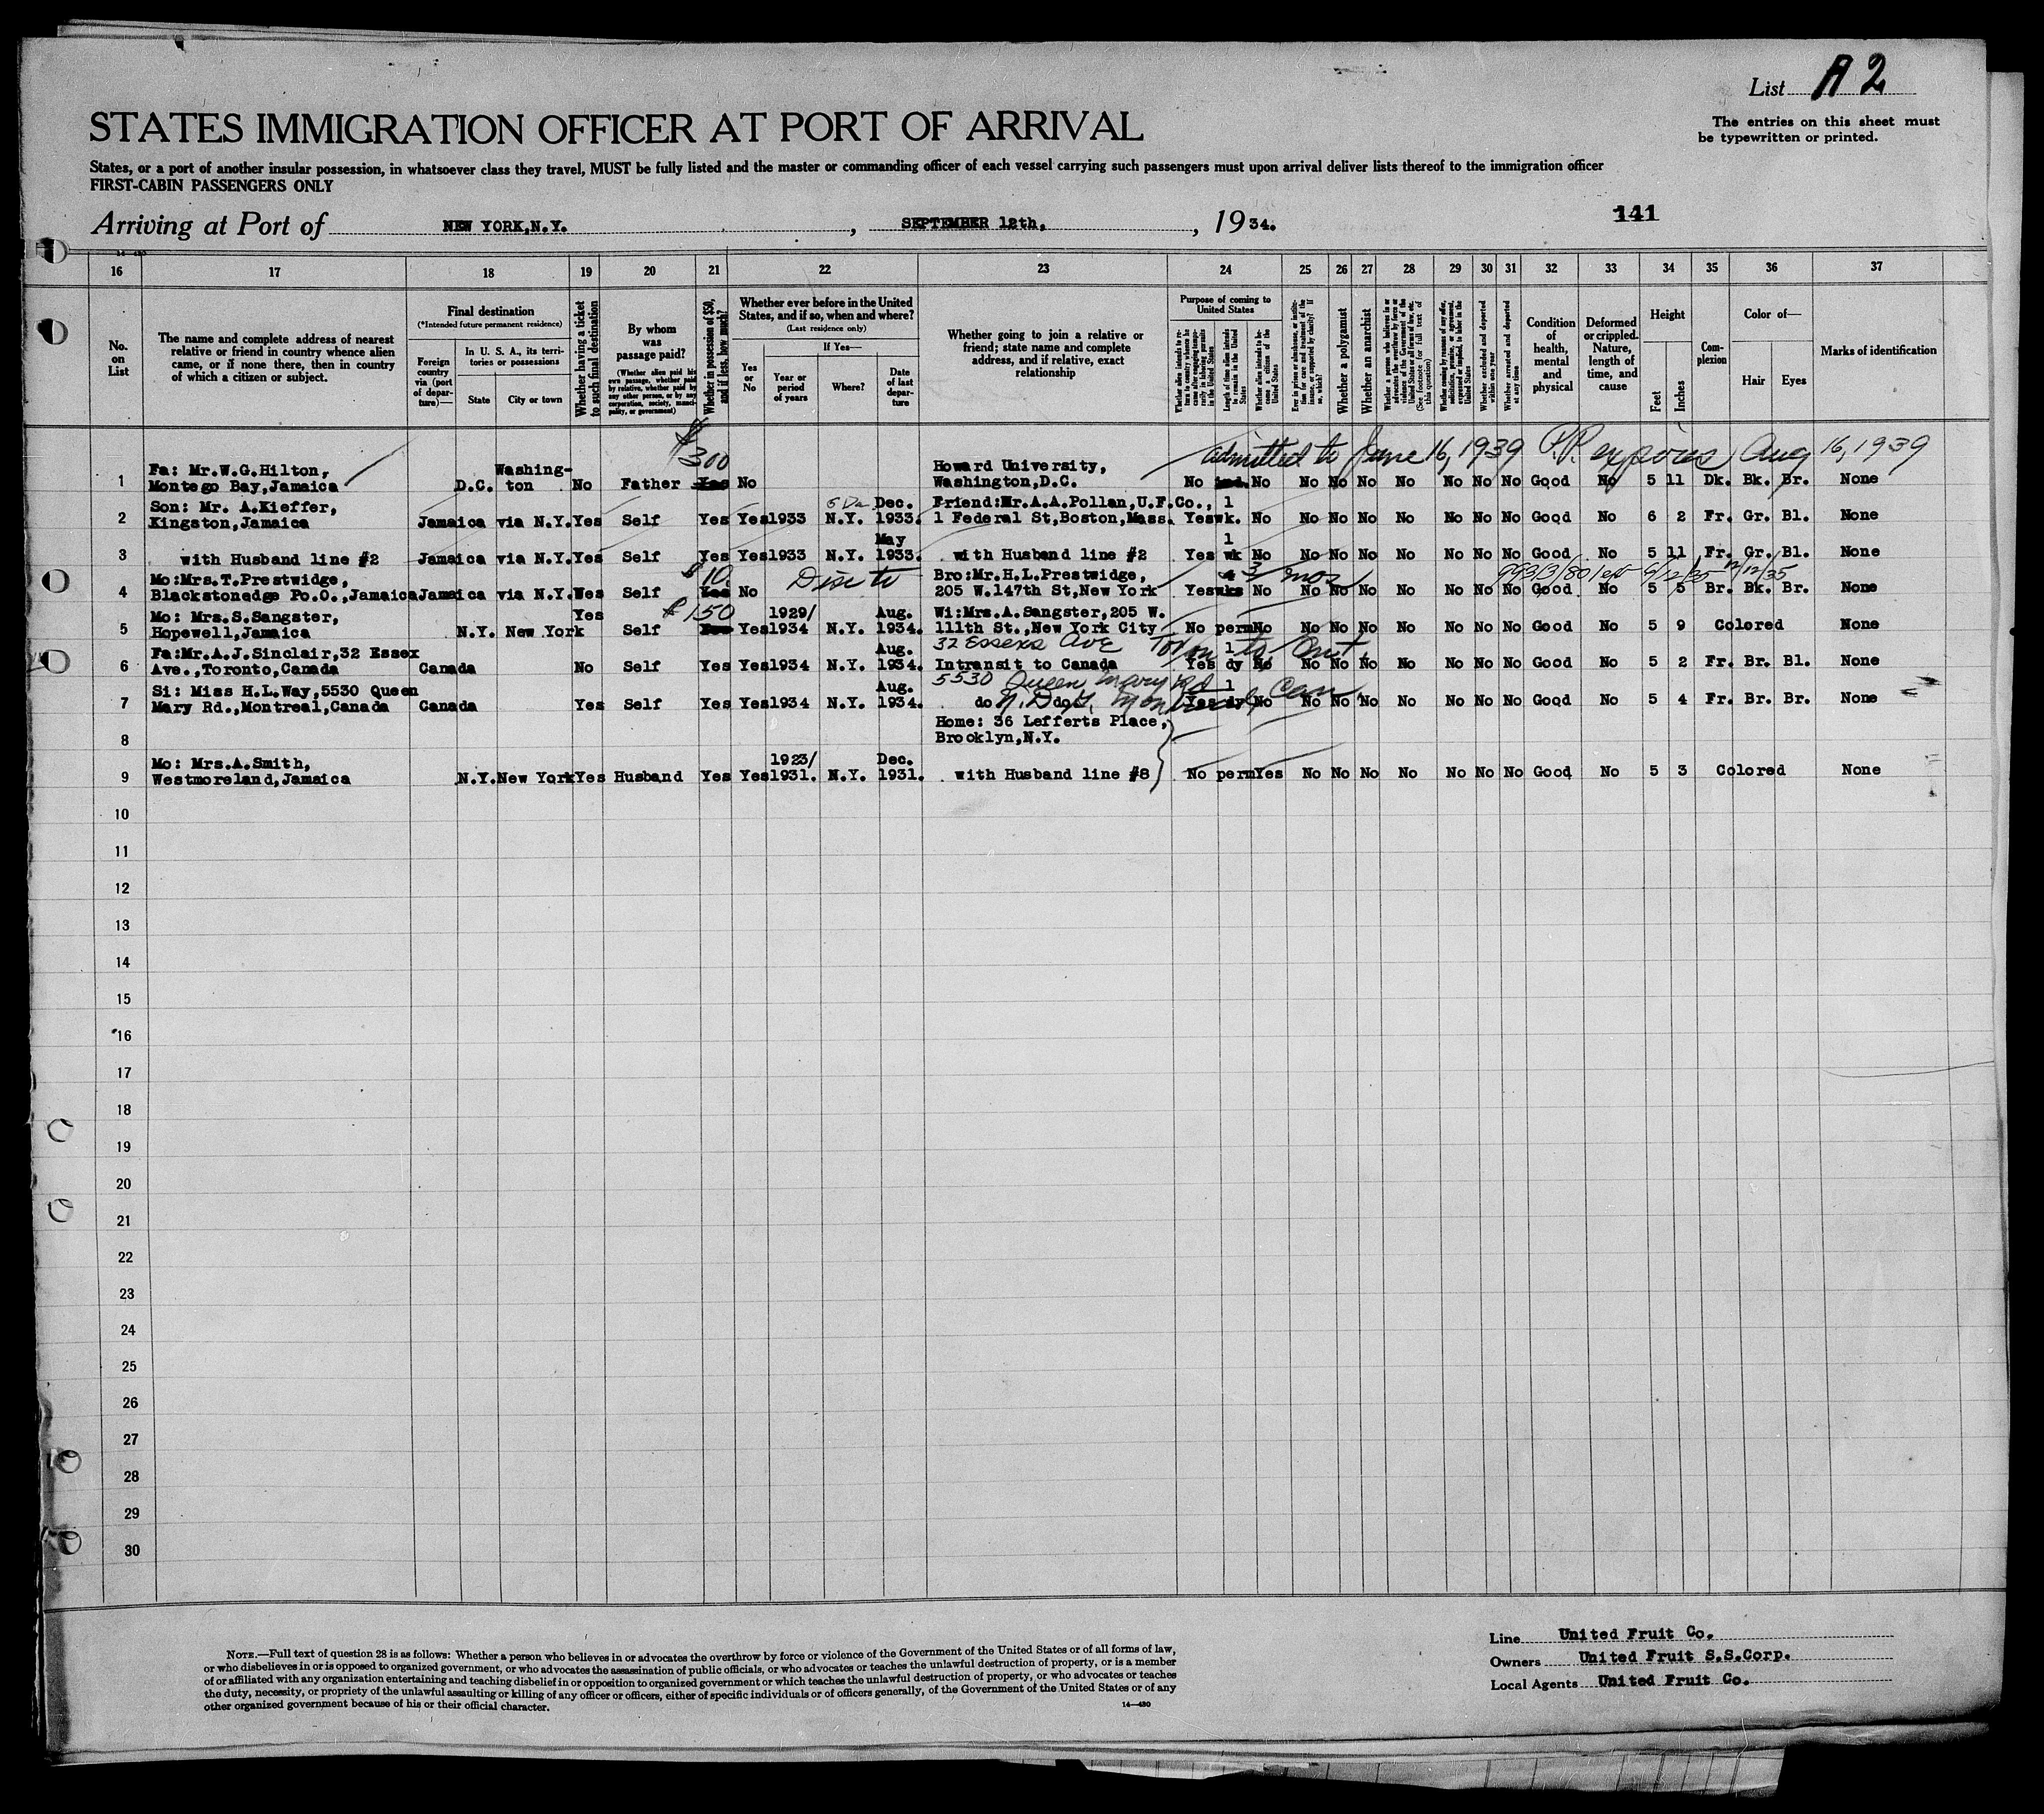 List A 2
The entries on this sheet must
be typewritten or printed.
STATES IMMIGRATION OFFICER AT PORT OF ARRIVAL
States, or a port of another insular possession, in whatsoever class they travel, MUST be fully listed and the master or commanding officer of each vessel carrying such passengers must upon arrival deliver lists thereof to the immigration officer
FIRST-CABIN PASSENGERS ONLY
Arriving at Port of NEW YORK,N.Y. , SEPTEMBER 12th, , 1934.
141
16 17 18 19 20 21 22 23 24 25 26 27 28 29 30 31 32 33 34 35 36 37
No.
on
List
The name and complete address of nearest
relative or friend in country whence alien
came, or if none there, then in country
of which a citizen or subject.
Final destination
(*Intended future permanent residence)
Foreign
country
via (port
of depar-
ture)—
In U. S. A., its terri-
tories or possessions
State
City or town
Whether having a ticket
to such final destination
By whom
was
passage paid?
(Whether alien paid his
own passage, whether paid
by relative, whether paid by
any other person, or by any
corporation, society, munici-
pality, or government)
Whether in possession of $50,
and if less, how much?
Whether ever before in the United
States, and if so, when and where?
(Last residence only)
If Yes—
Yes
or
No
Year or
period
of years
Where?
Date
of last
depar-
ture
Whether going to join a relative or
friend; state name and complete
address, and if relative, exact
relationship
Purpose of coming to
United States
Whether a polygamist
Whether an anarchist
Condition
of
health,
mental
and
physical
Deformed
or crippled.
Nature,
length of
time, and
cause
Height
Feet
Inches
Com-
plexion
Color of—
Hair
Eyes
Marks of identification
$
300
admitted to June 16, 1939 P.P. expires Aug 16, 1939
Fa: Mr.W.G.Hilton, Washing- Howard University,
1 Montego Bay,Jamaica D.C. ton No Father Yes No Washington,D.C. No ind. No No No No No No No No Good No 5 11 Dk. Bk. Br. None
Son: Mr. A.Kieffer, Dec. Friend:Mr.A.A.Pollan,U.F.Co., 1
2 Kingston,Jamaica Jamaica via N.Y. Yes Self Yes Yes 1933 N.Y. 1933. 1 Federal St,Boston,Mass. Yes wk. No No No No No No No No Good No 6 2 Fr. Gr. Bl. None
May 1
3 with Husband line #2 Jamaica via N.Y. Yes Self Yes Yes 1933 N.Y. 1933. with Husband line #2 Yes wk No No No No No No No No Good No 5 11 Fr. Gr. Bl. None
Mo:Mrs.T.Prestwidge, $10. Bro:Mr.H.L.Prestwidge, 4 3 mos
4 Blackstonedge Po.O.,Jamaica Jamaica via N.Y. Yes Self Yes No 205 W.147th St,New York Yes wks No No No No No No No No Good No 5 5 Br. Bk. Br. None
Mo: Mrs.S.Sangster, Yes $150 1929/ Aug. Wi:Mrs.A.Sangster,205 W.
5 Hopewell,Jamaica N.Y. New York Self Yes 1934 N.Y. 1934. 111th St.,New York City No perm No No No No No No No No Good No 5 9 Colored None
Fa:Mr.A.J.Sinclair,32 Essex Aug. 32 Essexs Ave Toronto Ont. 1
6 Ave.,Toronto,Canada Canada No Self Yes Yes 1934 N.Y. 1934. Intransit to Canada Yes dy No No No No No No No No Good No 5 2 Fr. Br. Bl. None
Si: Miss H.L.Way,5530 Queen Aug. 5530 Queen Mary Rd 1
7 Mary Rd.,Montreal,Canada Canada Yes Self Yes Yes 1934 N.Y. 1934. do do N.D.G. Montreal Can. Yes dy No No No No No No No No Good No 5 4 Fr. Br. Br. None
Home: 36 Lefferts Place,
8 Brooklyn,N.Y.
Mo: Mrs.A.Smith, 1923/ Dec.
9 Westmoreland,Jamaica N.Y. New York Yes Husband Yes Yes 1931. N.Y. 1931. with Husband line #8 No perm Yes No No No No No No No Good No 5 3 Colored None
10
11
12
13
14
15
16
17
18
19
20
21
22
23
24
25
26
27
28
29
30
NOTE.—Full text of question 28 is as follows: Whether a person who believes in or advocates the overthrow by force or violence of the Government of the United States or of all forms of law,
or who disbelieves in or is opposed to organized government, or who advocates the assassination of public officials, or who advocates or teaches the unlawful destruction of property, or is a member
of or affiliated with any organization entertaining and teaching disbelief in or opposition to organized government or which teaches the unlawful destruction of property, or who advocates or teaches
the duty, necessity, or propriety of the unlawful assaulting or killing of any officer or officers, either of specific individuals or of officers generally, of the Government of the United States or of any
other organized government because of his or their official character.
14—480
Line United Fruit Co.
Owners United Fruit S.S.Corp.
Local Agents United Fruit Co.